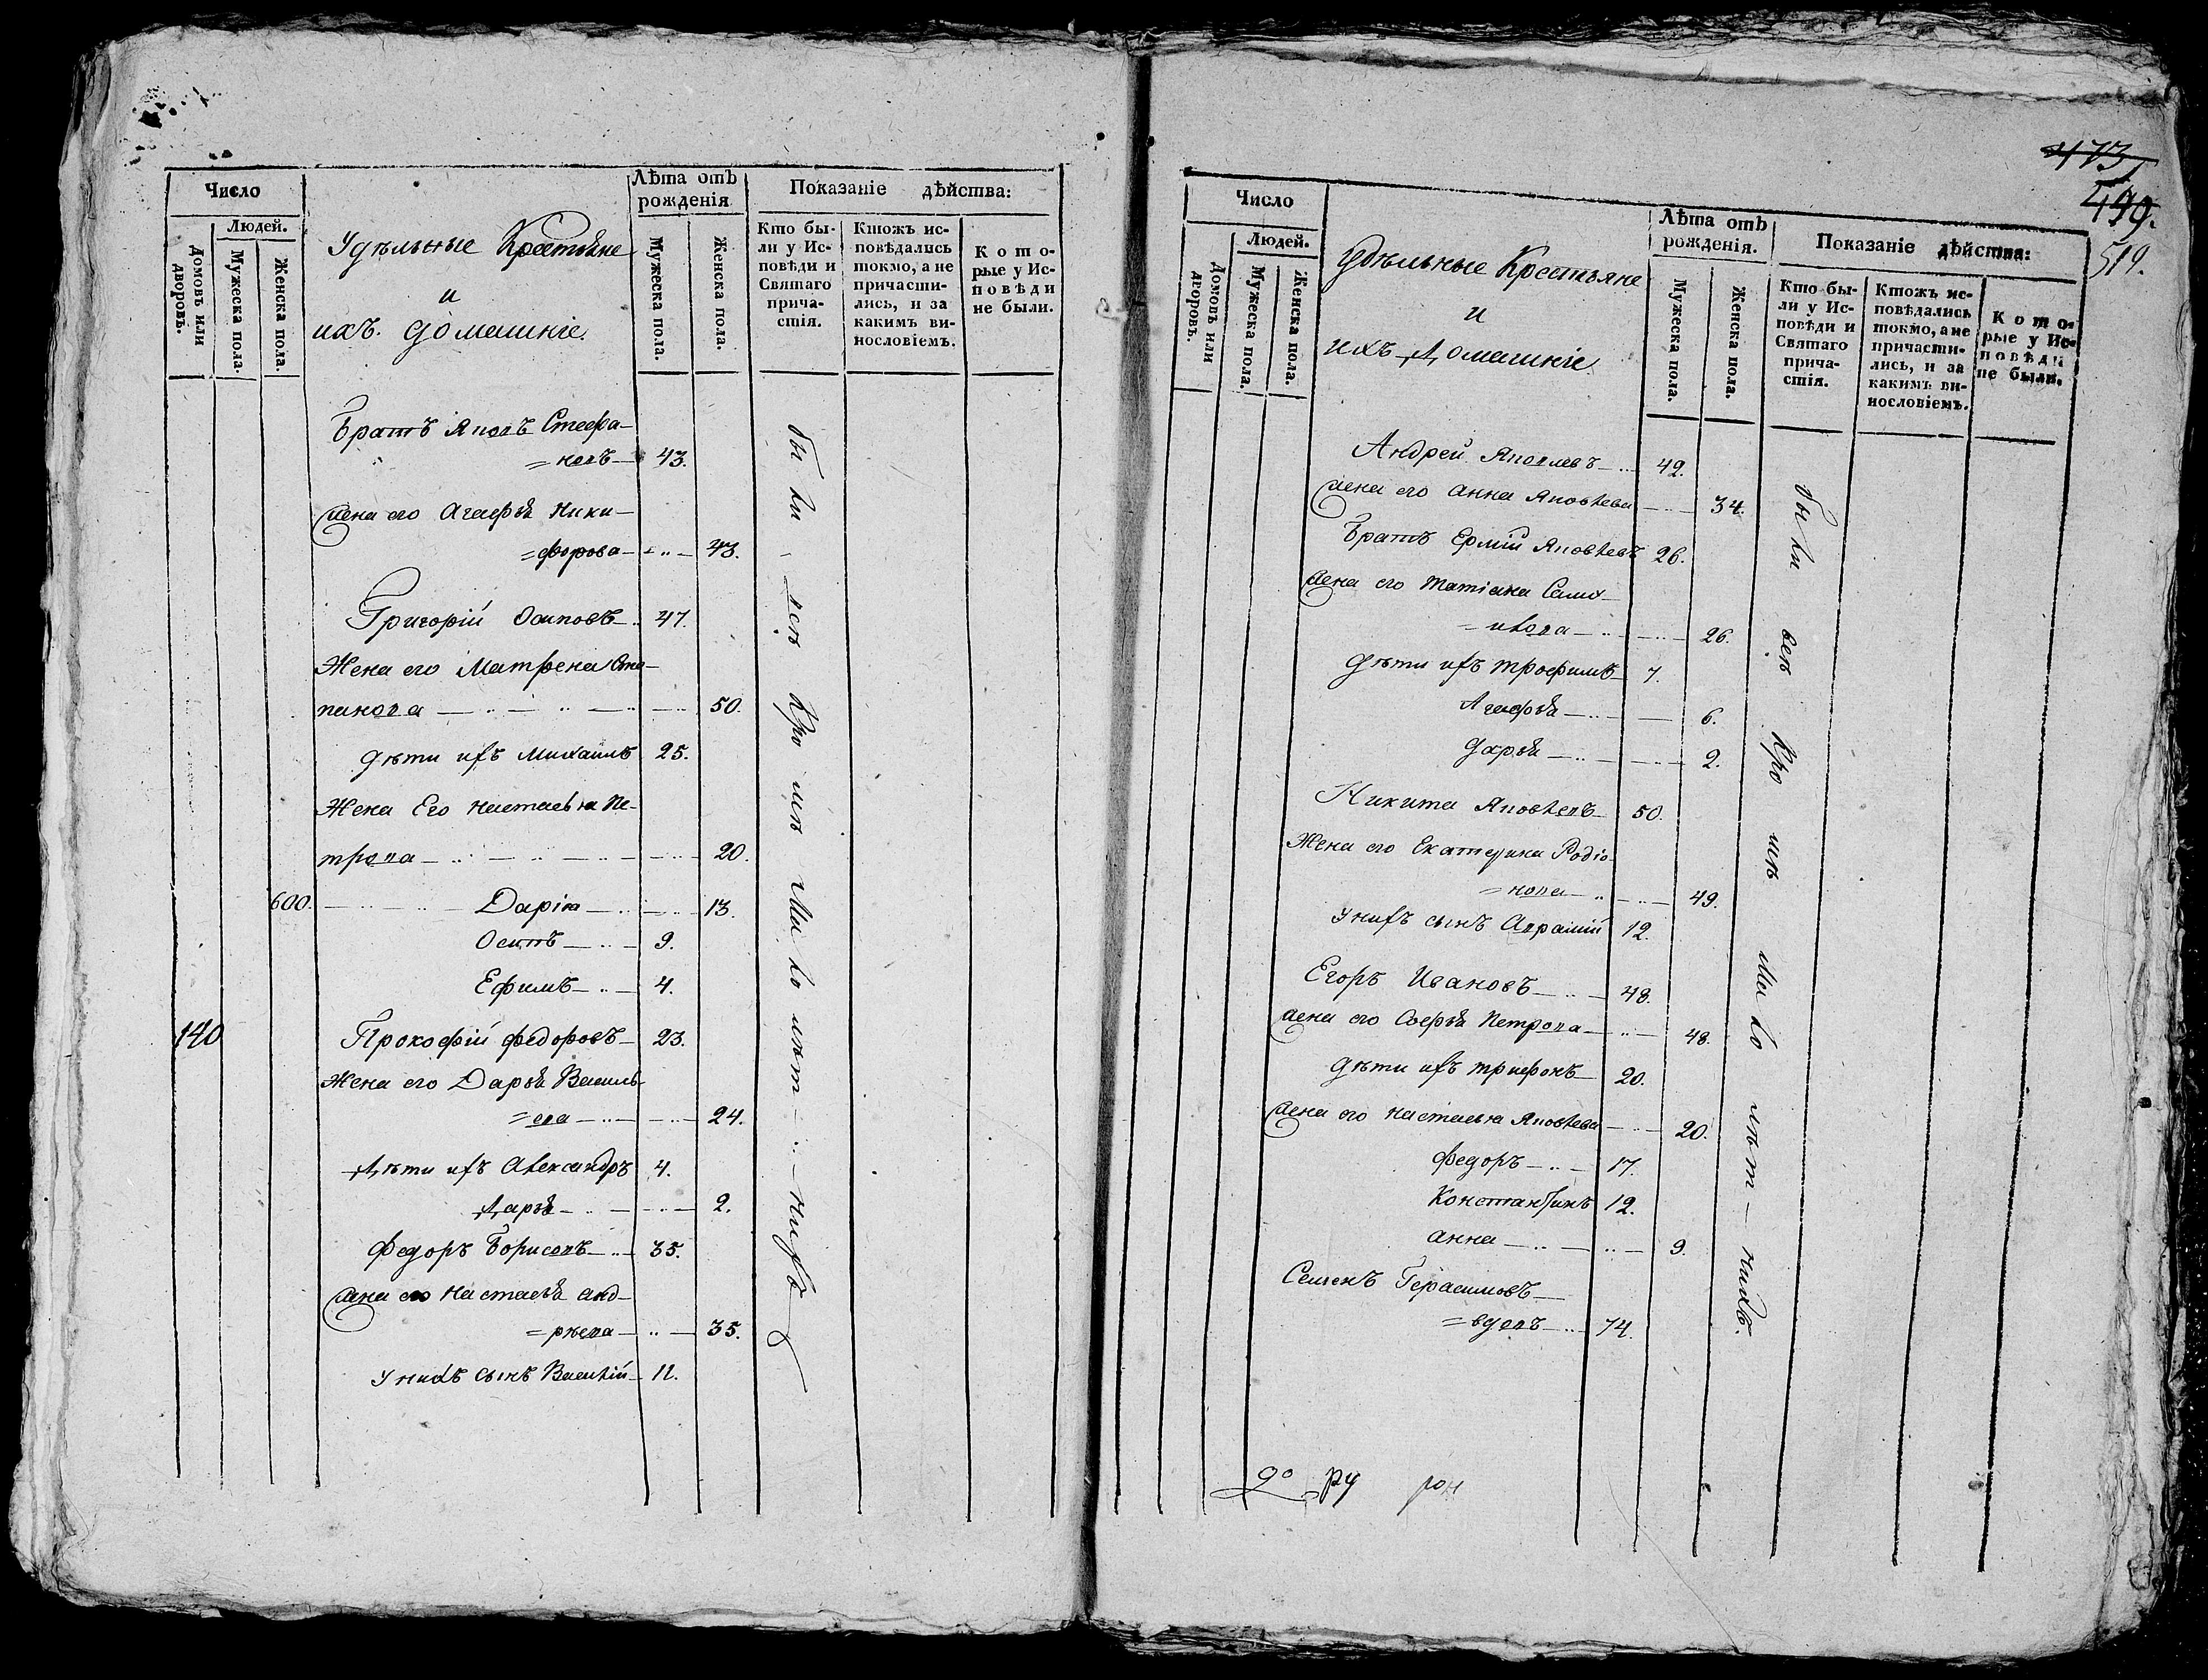 Число
Людей.
Домовъ или дворовъ.
Мужеска пола.
Женска пола.
Удѣльные Крестьяне
и
ихъ домашніе.
Лѣта отъ рожденія
Мужеска пола.
Женска пола.
Показаніе дѣйства:
Кто были у Исповѣди и Святаго причастія.
Ктожъ исповѣдались токмо, а не причастились, и за какимъ винословіемъ.
Которые у Исповѣди не были.
Братъ Яковъ Стефа-
=новъ 43.
Жена его Агафья Ники-
=форова 43.
Григорій Осиповъ 47.
Жена его Матрена Сте-
панова 50.
Дѣти ихъ Михаилъ 25.
Жена Его Настасья Пе-
трова 20.
600. Дарія 13.
Осипъ 9.
Ефимъ 4.
140 Прокофій Федоровъ 23.
Жена его Дарья Василь-
=ева 24.
Дѣти ихъ Александръ 4.
Дарья 2.
Федоръ Борисовъ 35.
Жена его Настасья Анд-
=рѣева 35.
У нихъ сынъ Василій 11.
были всѣ кромѣ малолѣт- нихъ
473
499.
519.
Число
Людей.
Домовъ или дворовъ.
Мужеска пола.
Женска пола.
Удѣльные Крестьяне
и
ихъ Домашніе
Лѣта отъ рожденія.
Мужеска пола.
Женска пола.
Показаніе дѣйства:
Кто были у Исповѣди и Святаго причастія.
Ктожъ исповѣдались токмо, а не причастились, и за какимъ винословіемъ.
Которые у Исповѣди не были.
Андрей Яковлевъ 42.
Жена его Анна Яковлева 34.
Братъ Ермій Яковлевъ 26.
Жена его Татіана Само-
=илова 26.
Дѣти ихъ Трофимъ 7.
Агафья 6.
Дарья 2.
Никита Яковлевъ 50.
Жена его Екатерина Родіо-
=нова 49.
У нихъ сынъ Аврамій 12.
Егоръ Ивановъ 48.
Жена его Софья Петрова 48.
Дѣти ихъ Трифонъ 20.
Жена его Настасья Яковлева 20.
Федоръ 17.
Константинъ 12.
Анна 9.
Семенъ Герасимовъ
=вдовъ 74.
были всѣ кромѣ малолѣт- нихъ.